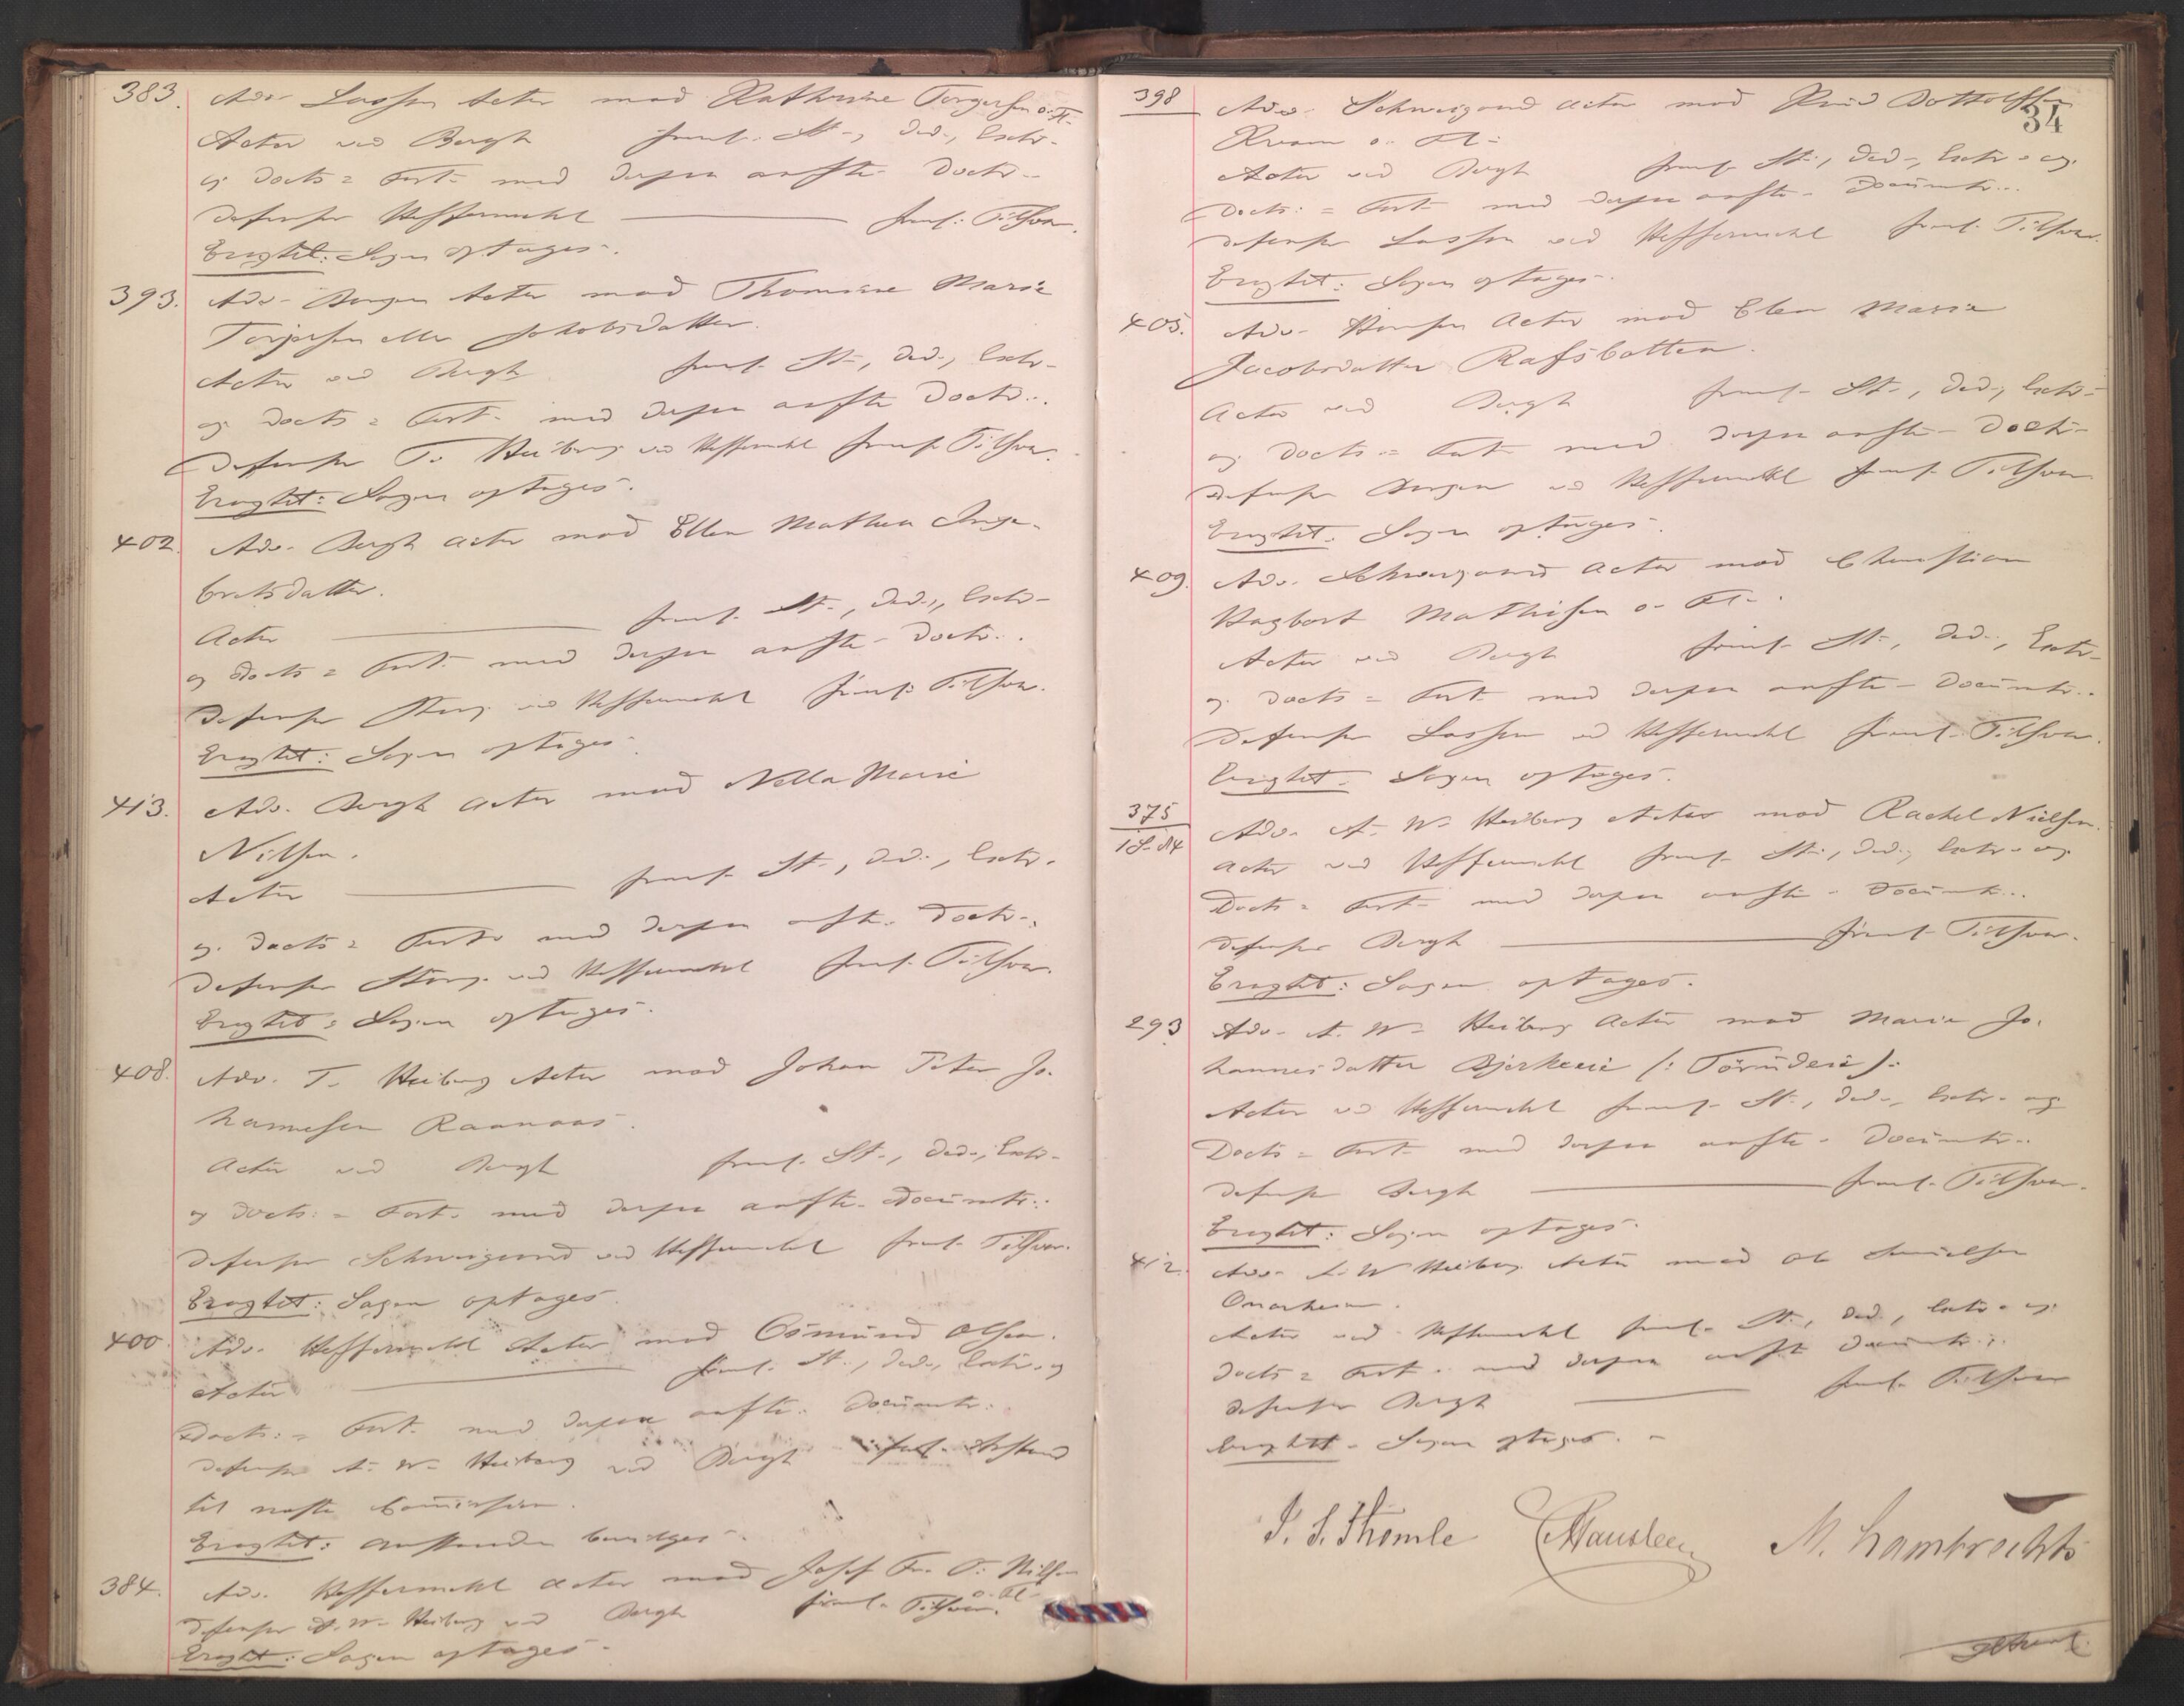 383. Adv. Lassen Actor mod Kathrine Torgersen o. Fl.
Actor ved Bergh freml. St., Ded., Extr.
og Docts = Fort. med deri anfte Doctr.
Defensor Heffermehl freml. Tilsvar.
Eragtet: Sagen optages.
393. Adv. Bergen Actor mod Thomine Marie
Torjesen eller Jakobsdatter.
Actor ved Bergh freml. St., Ded., Extr.
og Docts = Fort. med anfte Doctr.
Defensor T. Heiberg ved Heffermehl freml. Tilsvar.
Eragtet: Sagen optages.
402. Adv. Bergh Actor mod Ellen Mathea Inge-
bretsdatter.
Actor freml. St., Ded., Extr.
og Docts = Fort. med anfte Doctr.
Defensor ved Heffermehl freml. Tilsvar.
Eragtet: Sagen optages.
413. Adv. Bergh Actor mod Nella Marie
Nilsen.
Actor freml. St., Ded., Extr.
og Docts = Fort. med anfte Doctr.
Defensor ved Heffermehl freml. Tilsvar.
Eragtet: Sagen optages.
408. Adv. T. Heiberg Actor mod Johan Peter Jo-
hannesen Raanaas.
Actor ved Bergh freml. St., Ded., Extr.
og Docts: = Fort. med anfte Documtr.
Defensor Schweigaard ved Heffermehl freml. Tilsvar.
Eragtet: Sagen optages.
400. Adv. Heffermehl Actor mod Osmund Olsen.
Actor freml. St., Ded., Extr. og
Docts: = Fort. med anfte Documtr.
Defensor A. W. Heiberg ved Bergh freml. Anstand
til næste
Eragtet: Anstanden bevilges.
384. Adv. Heffermehl Actor mod Josef Fr. O. Nilsen
o. Fl.
Defensor A. W. Heiberg ved Bergh freml. Tilsvar.
Eragtet: Sagen optages.
34
398 Adv. Schweigaard Actor mod Knud Bottolfsen
Kvam o. Fl.
Actor ved Bergh freml. St., Ded., Extr. og
Docts: = Fort. med anfte Documtr.
Defensor Lassen ved Heffermehl freml. Tilsvar.
Eragtet: Sagen optages.
405. Adv. Actor mod Elen Maria
Jacobsdatter Rafsbotten.
Actor ved Bergh freml. St., Ded., Extr.
og Docts = Fort. med anfte Doctr.
Defensor Bergen ved Heffermehl freml. Tilsvar.
Eragtet: Sagen optages.
409. Adv. Schweigaard Actor mod Christian
Hagbart Mathisen o. Fl.
Actor ved Bergh freml. St., Ded., Extr.
og Docts = Fort. med anfte Documtr.
Defensor Lassen ved Heffermehl freml. Tilsvar.
Eragtet: Sagen optages.
375 Adv. A. W. Heiberg Actor mod Rachel Nielsen.
Actor ved Heffermehl freml. St., Ded., Extr. og
Docts = Fort. med anfte Documtr.
Defensor Bergh freml. Tilsvar.
Eragtet: Sagen optages.
293 Adv. A. W. Heiberg Actor mod Marie Jo-
hannesdatter Bjerkeeie
Actor ved Heffermehl freml. St., Ded., Extr. og
Docts = Fort. med anfte Documtr.
Defensor Bergh freml. Tilsvar.
Eragtet: Sagen optages.
412. Adv. A. W. Heiberg Actor mod Ole Samuelsen
Onarheim.
Actor ved Heffermehl freml. St., Ded., Extr. og
Docts = Fort. med anfte Documtr.
Defensor Bergh freml. Tilsvar
Eragtet: Sagen optages.
I. S. Thomle Hansteen M. Lambrechts